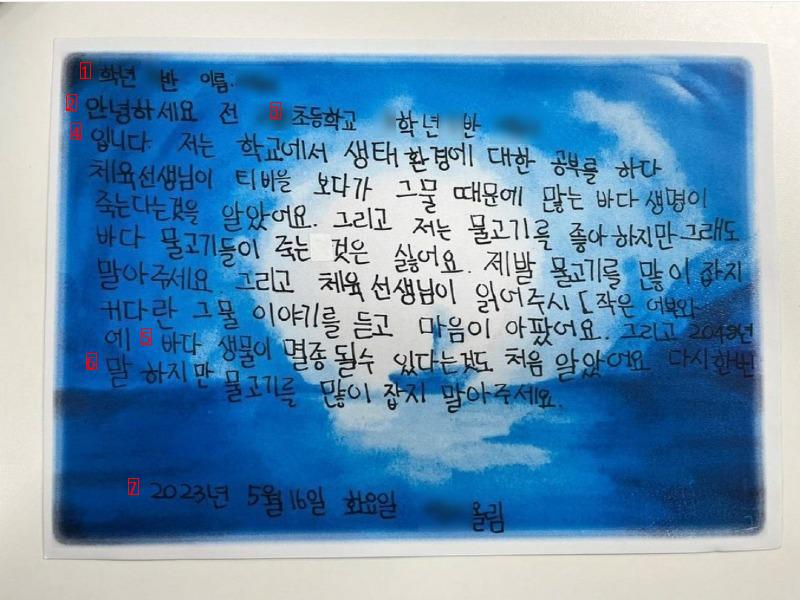 1 학년 반 이름.
2 안녕하세요 전 3 초등학교 학년 반
4 입니다. 저는 학교에서 생태환경에 대한 공부를 하다
체육선생님이 티비을 보다가 그물 때문에 많는 바다 생명이
죽는다는것을 알았어요. 그리고 저는 물고기를 좋아 하지만 그래도
바다 물고기들이 죽는 것은 싫어요. 제발 물고기를 많이 잡지
말아주세요. 그리고 체육선생님이 읽어주시 [작은 어부와
커다란 그물 이야기를 듣고 마음이 아팠어요. 그리고 2048년
에 5 바다 생물이 멸종 될수 있다는것도 처음 알았어요 다시한번
6 말 하지만 물고기를 많이 잡지 말아주세요.
7 2023년 5월 16일 화요일 올림